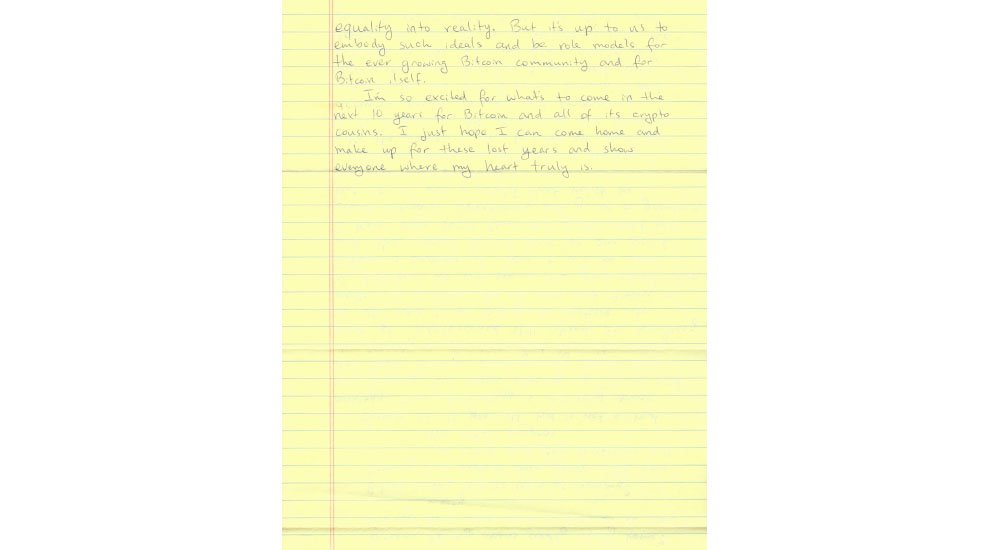 equality into reality. But it's up to us to
embody such ideals and be role models for
the ever growing Bitcoin community and for
Bitcoin itself.
I'm so excited for what's to come in the
next 10 years for Bitcoin and all of its crypto
cousins. I just hope I can come home and
make up for these lost years and show
everyone where my heart truly is.